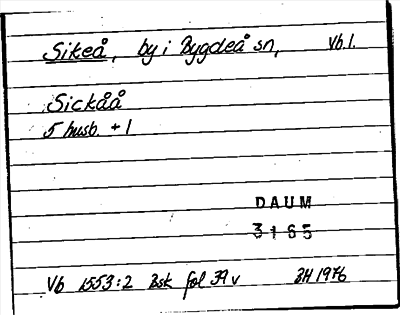 Sikeå, by i Bygdeå sn, Vb.l.
Sickåå
5 husb. + 1
DAUM
3165
Vb 1553:2 Bsk fol 39 v BH 1976